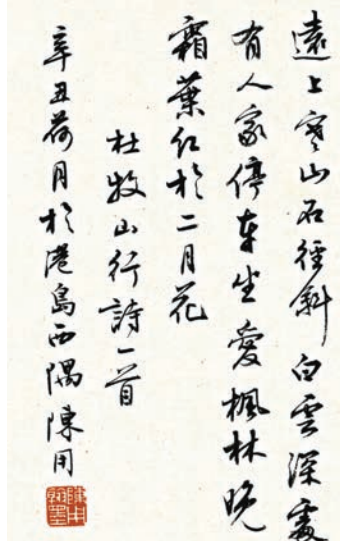 遠上寒山石徑斜白雲深處
有人家停車坐愛楓林晚
霜葉紅於二月花
杜牧山行詩一首
辛丑荷月於港島西隅陳用